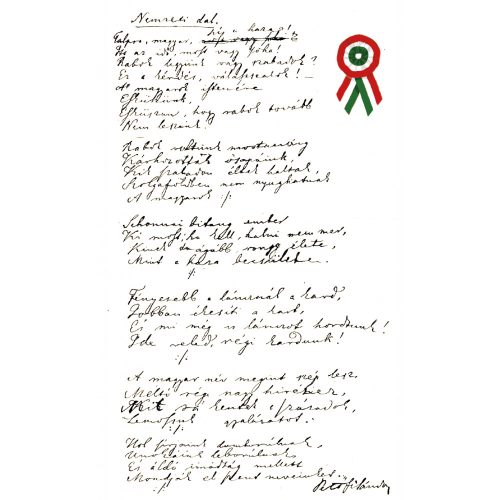 Nemzeti dal.
Talpra, magyar, hí a haza!
Itt az idő, most vagy soha!
Rabok legyünk vagy szabadok?
Ez a kérdés, válasszatok! –
A magyarok istenére
Esküszünk,
Esküszünk, hogy rabok tovább
Nem leszünk!
Rabok voltunk mostanáig
Kárhozottak ősapáink,
Kik szabadon éltek haltak,
Szolgaföldben nem nyughatnak
A magyarok :/:
Sehonnai bitang ember
Ki most, ha kell, halni nem mer,
Kinek drágább rongy élete,
Mint a haza becsülete.
:/:
Fényesebb a láncznál a kard,
Jobban ékesíti a kart,
És mi még is lánczot hordtunk!
Ide veled, régi kardunk!
:/:
A magyar név megint szép lesz,
Méltó régi nagy hiréhez,
Mit rá kentek a századok,
Lemossuk gyalázatot.
:/:
Hol sírjaink domborulnak,
Unokáink leborulnak
És áldó imádság mellett
Mondják el szent neveinket.
Petőfi Sándor